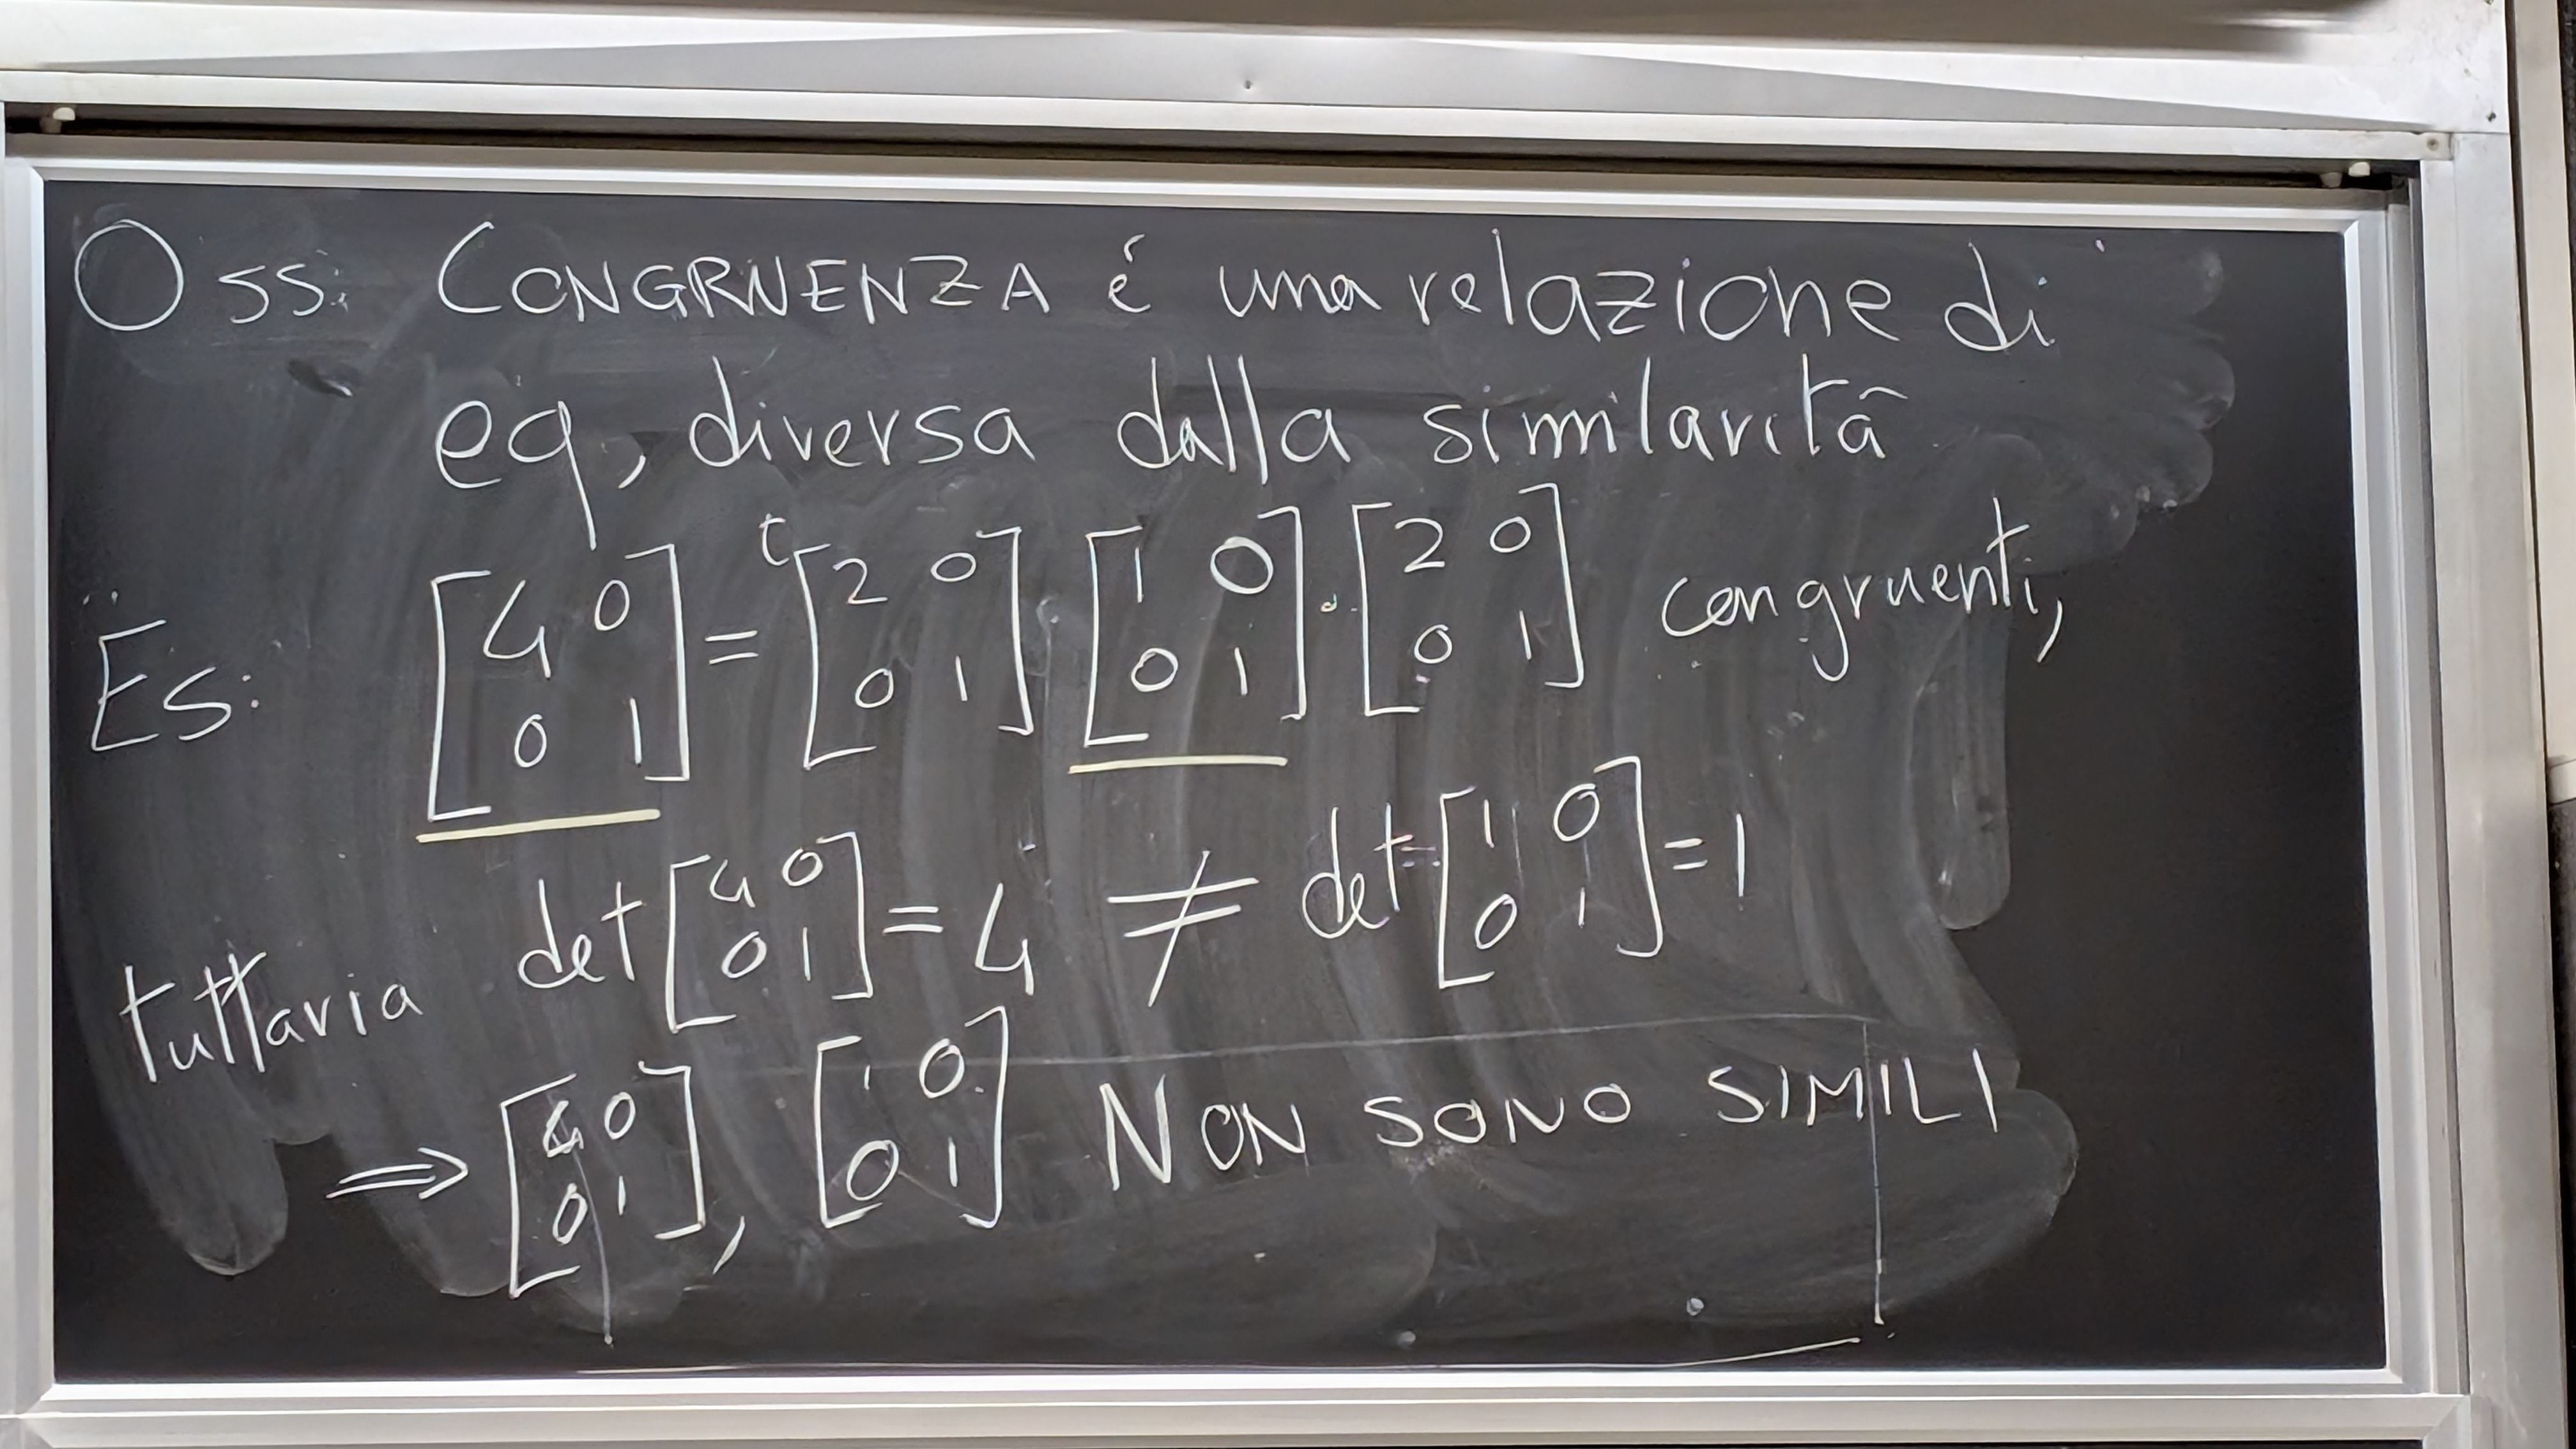 Oss: CONGRUENZA é una relazione di
eq, diversa dalla similarità
Es: [4 0; 0 1] = ᵗ[2 0; 0 1] [1 0; 0 1] · [2 0; 0 1] congruenti,
tuttavia det [4 0; 0 1] = 4 ≠ det [1 0; 0 1] = 1
⇒ [4 0; 0 1], [1 0; 0 1] NON SONO SIMILI